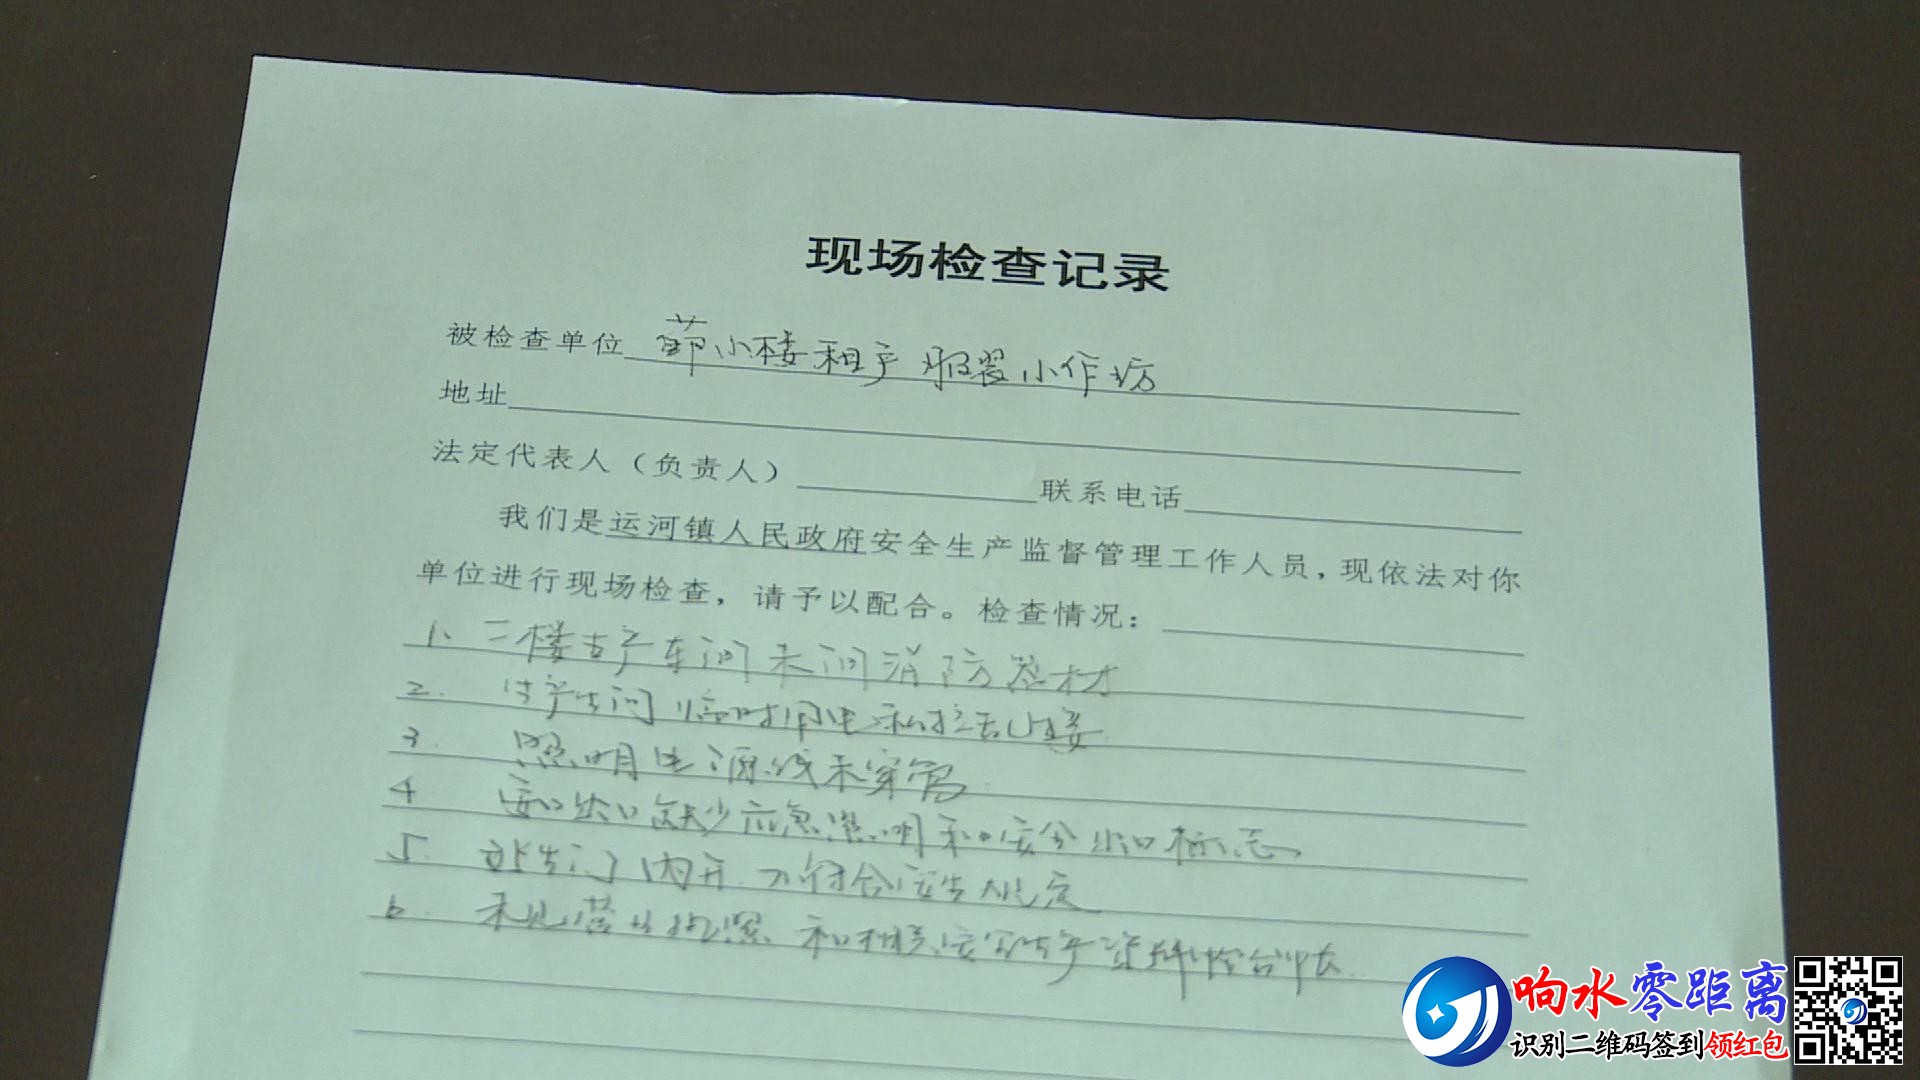 现场检查记录
被检查单位 节小楼租户服装小作坊
地址
法定代表人（负责人） 联系电话
我们是运河镇人民政府安全生产监督管理工作人员，现依法对你
单位进行现场检查，请予以配合。检查情况：
1、二楼生产车间未 消防器材
2. 生产车间临时用电私拉乱接
3. 照明电源线未穿管
4 安全出口缺少应急照明和安全出口标志
5. 内开不符合安全规定
6. 未见营业执照和相关安全生产资料 台帐
响水零距离
识别二维码签到领红包